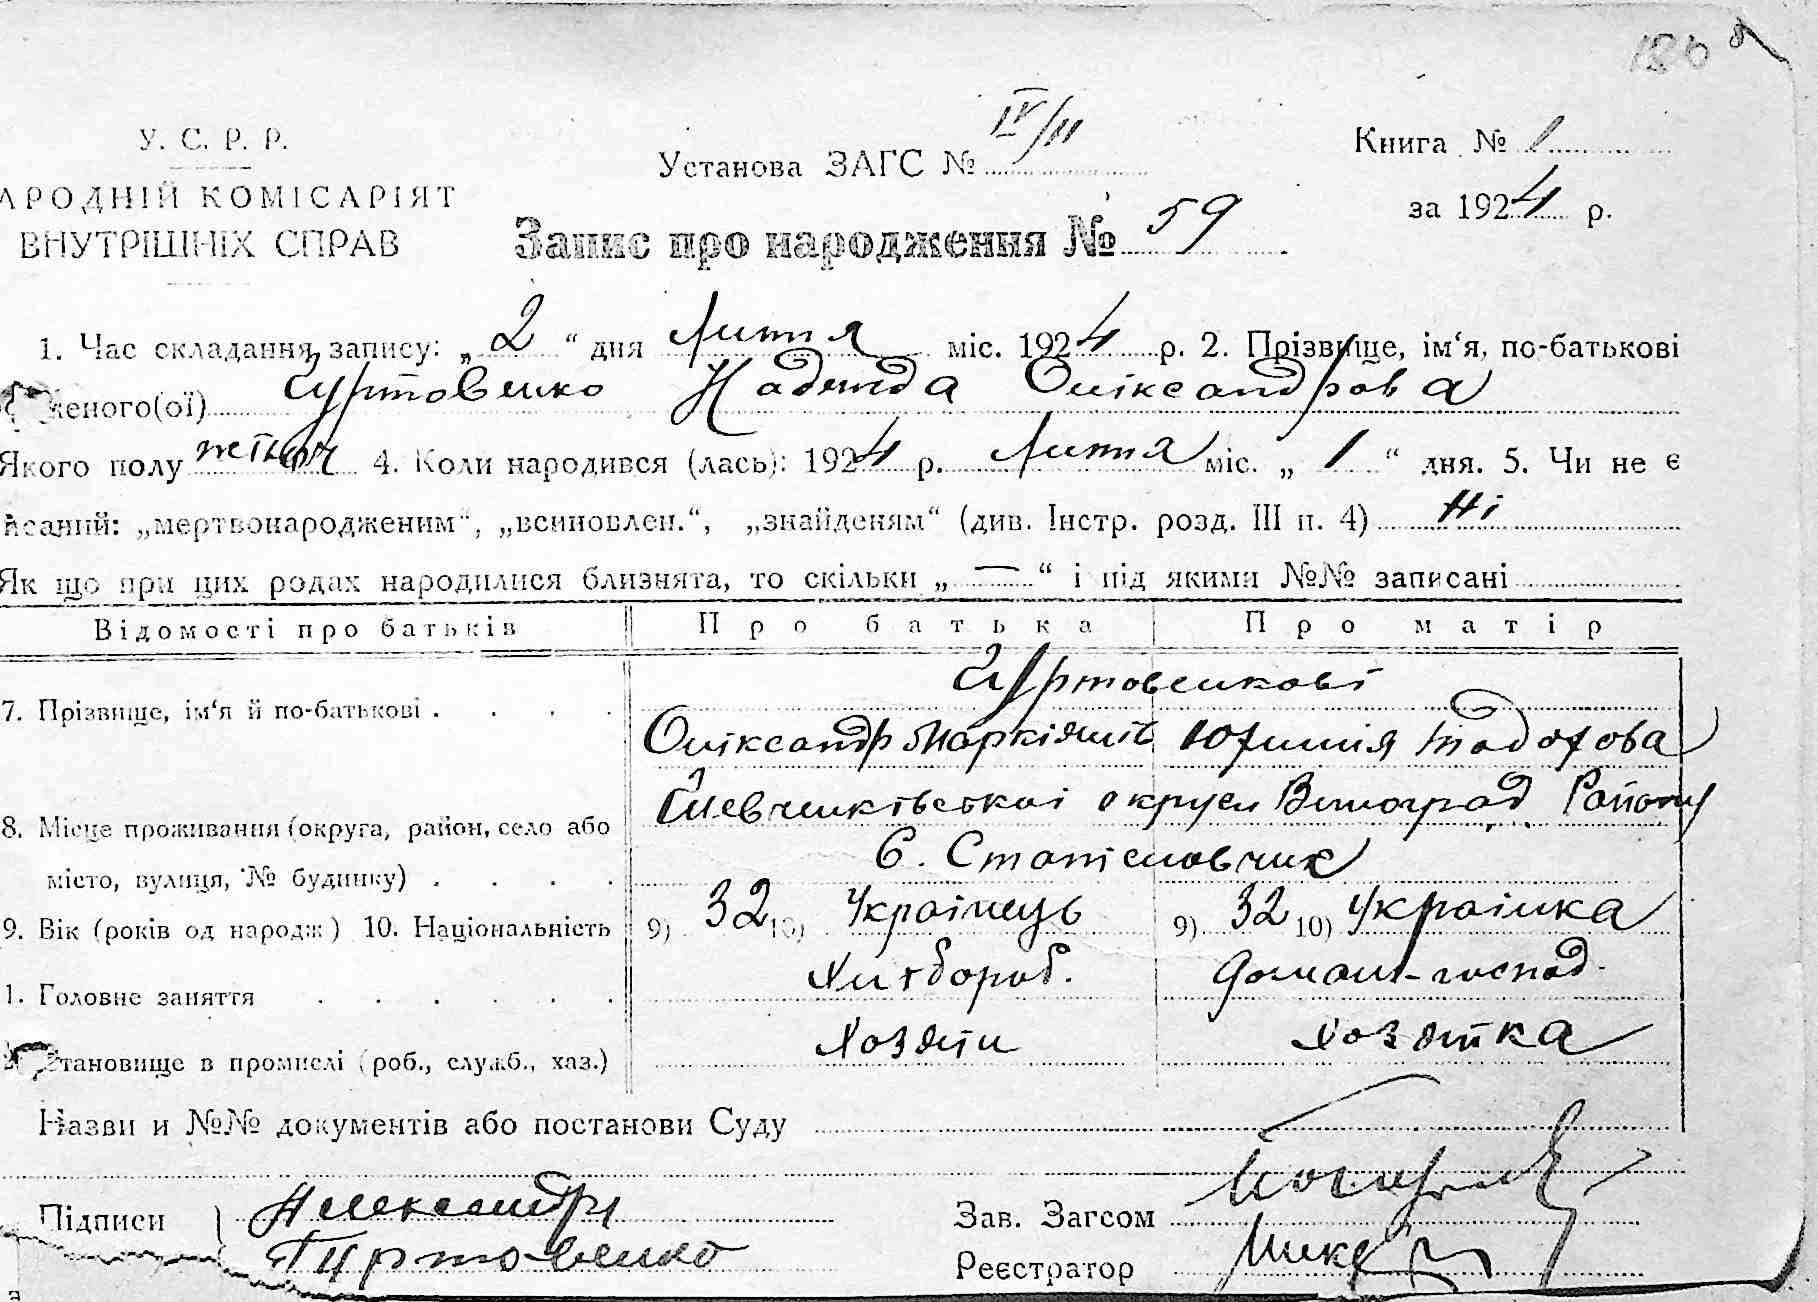 180
У. С. Р. Р.
АРОДНІЙ КОМІСАРІЯТ
ВНУТРІШНІХ СПРАВ
Установа ЗАГС № IV/11
Книга № 1
за 1924 р.
Запис про народження № 59
1. Час складання запису: „2“ дня Липня міс. 1924 р. 2. Прізвище, ім‘я, по-батькові
женого(ої) Гуртовенко Надежда Олександрова
Якого полу 4. Коли народився (лась): 1924 р. Липня міс. „1“ дня. 5. Чи не є
исаний: „мертвонародженим“, „всиновлен.“, „знайденям“ (див. Інстр. розд. III п. 4) Ні
Як що при цих родах народилися близнята, то скільки „—“ і під якими №№ записані
Відомості про батьків Про батька Про матір
7. Прізвище, ім‘я й по-батькові . . . . Гуртовенкові
Олександр Маркіянів Юхимія Тодорова
8. Місце проживання (округа, район, село або Шевченківської округи Виноград. Району
місто, вулиця, № будинку) . . . . С. Станіславчик
9. Вік (років од народж) 10. Національність 9) 32 10) Українець 9) 32 10) Українка
1. Головне заняття . . . . . . Хлібороб. Домаш-господ.
Становище в промислі (роб., служб., хаз.) Хозяїн Хозяйка
Назви и №№ документів або постанови Суду
Підписи } Александр
Гуртовенко
Зав. Загсом
Реєстратор